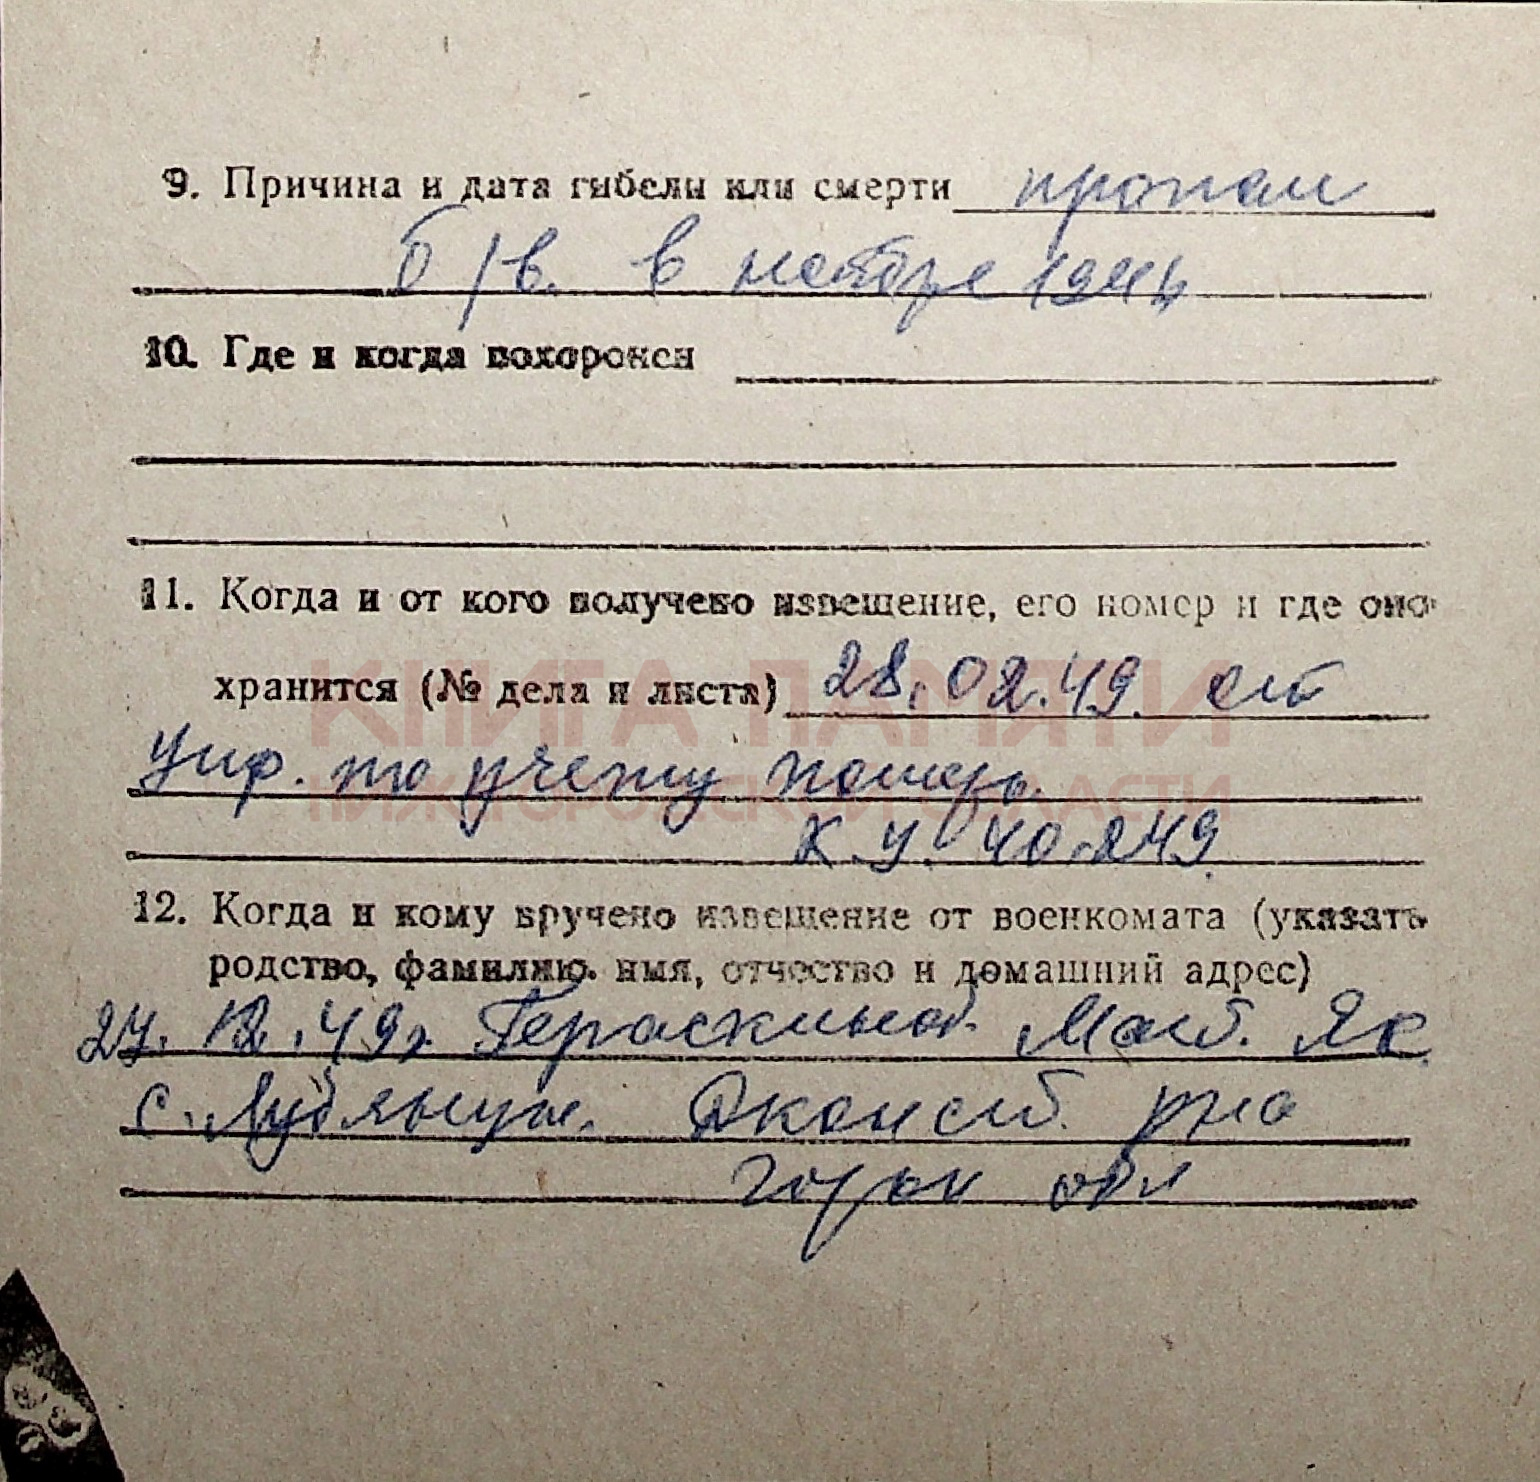 9. Причина и дата гибели или смерти пропал
б/в. в ноябре 1944
10. Где и когда похоронен
11. Когда и от кого получено извещение, его номер и где оно
хранится (№ дела и листа) 28.02.49. от
Упр. по учету потерь.
К.У. 40.249.
КНИГА ПАМЯТИ
НИЖЕГОРОДСКОЙ ОБЛАСТИ
12. Когда и кому вручено извещение от военкомата (указать
родство, фамилию. имя, отчество и домашний адрес)
49г. Гераскиной. Як
с.
горьк обл